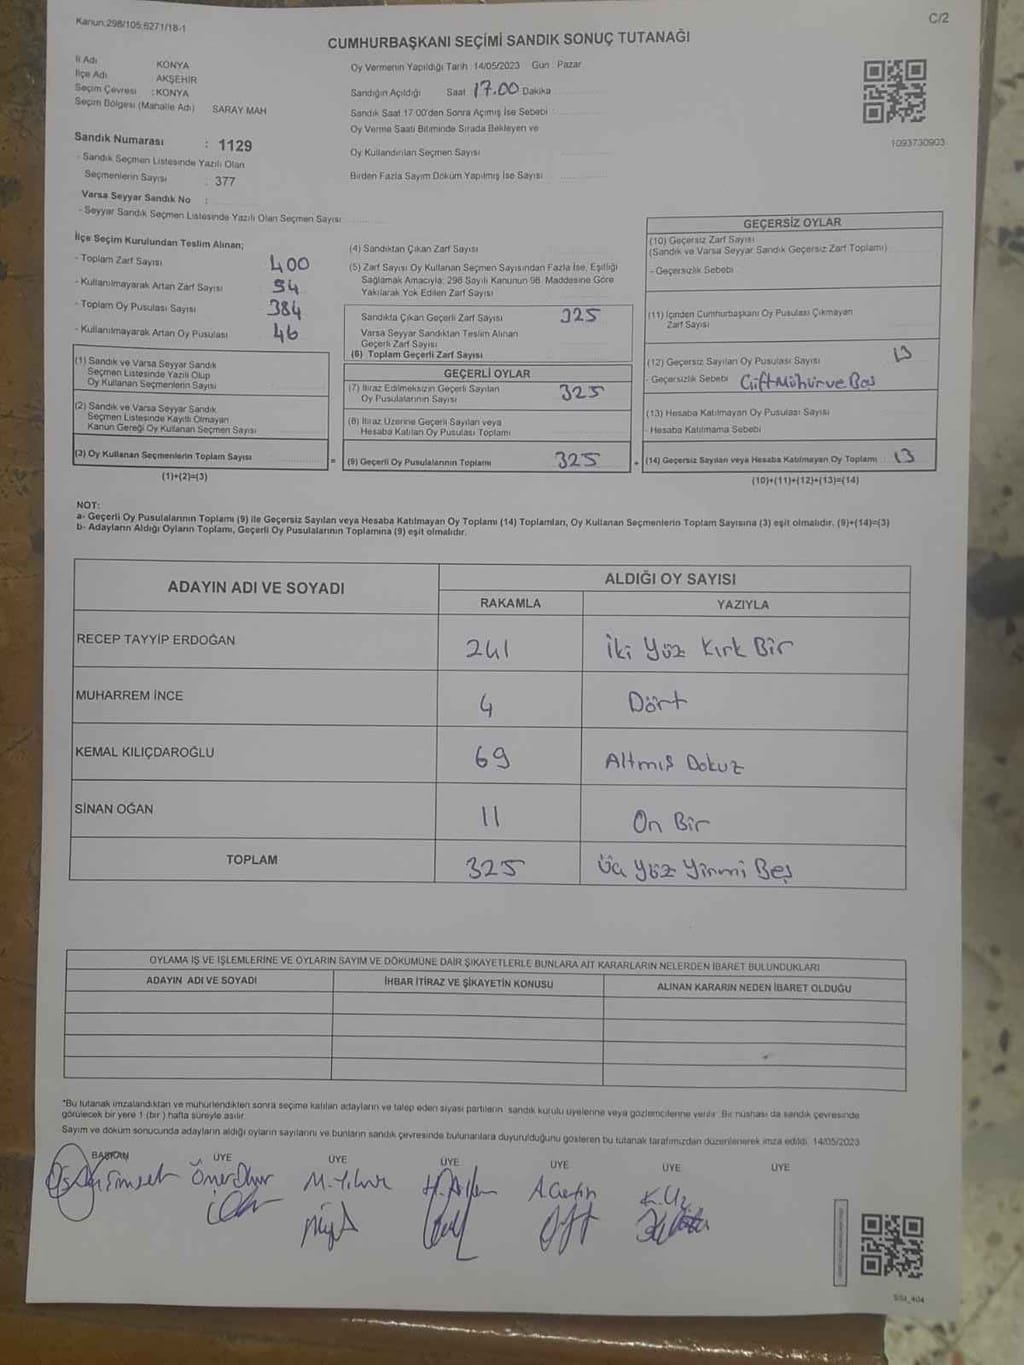 Kanun:298/105,6271/18-1
C/2
CUMHURBAŞKANI SEÇİMİ SANDIK SONUÇ TUTANAĞI
İl Adı : KONYA
İlçe Adı : AKŞEHİR
Seçim Çevresi : KONYA
Seçim Bölgesi (Mahalle Adı) SARAY MAH
Oy Vermenin Yapıldığı Tarih : 14/05/2023 Gün : Pazar
Sandığın Açıldığı Saat 17.00 Dakika
Sandık Saat 17:00'den Sonra Açımış İse Sebebi
Oy Verme Saati Bitiminde Sırada Bekleyen ve
Oy Kullandırılan Seçmen Sayısı
Birden Fazla Sayım Döküm Yapılmış İse Sayısı
1093730903
Sandık Numarası : 1129
- Sandık Seçmen Listesinde Yazılı Olan
Seçmenlerin Sayısı : 377
Varsa Seyyar Sandık No :
- Seyyar Sandık Seçmen Listesinde Yazılı Olan Seçmen Sayısı
İlçe Seçim Kurulundan Teslim Alınan;
- Toplam Zarf Sayısı 400
- Kullanılmayarak Artan Zarf Sayısı 54
- Toplam Oy Pusulası Sayısı 384
- Kullanılmayarak Artan Oy Pusulası 46
(1) Sandık ve Varsa Seyyar Sandık
Seçmen Listesinde Yazılı Olup
Oy Kullanan Seçmenlerin Sayısı
(2) Sandık ve Varsa Seyyar Sandık
Seçmen Listesinde Kayıtlı Olmayan
Kanun Gereği Oy Kullanan Seçmen Sayısı
(3) Oy Kullanan Seçmenlerin Toplam Sayısı
(1)+(2)=(3)
(4) Sandıktan Çıkan Zarf Sayısı
(5) Zarf Sayısı Oy Kullanan Seçmen Sayısından Fazla İse, Eşitliği
Sağlamak Amacıyla; 298 Sayılı Kanunun 98. Maddesine Göre
Yakılarak Yok Edilen Zarf Sayısı
Sandıkta Çıkan Geçerli Zarf Sayısı 325
Varsa Seyyar Sandıktan Teslim Alınan
Geçerli Zarf Sayısı
(6) Toplam Geçerli Zarf Sayısı
GEÇERLİ OYLAR
(7) İtiraz Edilmeksizin Geçerli Sayılan
Oy Pusulalarının Sayısı 325
(8) İtiraz Üzerine Geçerli Sayılan veya
Hesaba Katılan Oy Pusulası Toplamı
= (9) Geçerli Oy Pusulalarının Toplamı 325
GEÇERSİZ OYLAR
(10) Geçersiz Zarf Sayısı
(Sandık ve Varsa Seyyar Sandık Geçersiz Zarf Toplamı)
- Geçersizlik Sebebi
(11) İçinden Cumhurbaşkanı Oy Pusulası Çıkmayan
Zarf Sayısı
(12) Geçersiz Sayılan Oy Pusulası Sayısı 13
- Geçersizlik Sebebi Çift Mühür ve Boş
(13) Hesaba Katılmayan Oy Pusulası Sayısı
- Hesaba Katılmama Sebebi
+ (14) Geçersiz Sayılan veya Hesaba Katılmayan Oy Toplamı : 13
(10)+(11)+(12)+(13)=(14)
NOT:
a- Geçerli Oy Pusulalarının Toplamı (9) ile Geçersiz Sayılan veya Hesaba Katılmayan Oy Toplamı (14) Toplamları, Oy Kullanan Seçmenlerin Toplam Sayısına (3) eşit olmalıdır. (9)+(14)=(3)
b- Adayların Aldığı Oyların Toplamı, Geçerli Oy Pusulalarının Toplamına (9) eşit olmalıdır.
ADAYIN ADI VE SOYADI
ALDIĞI OY SAYISI
RAKAMLA YAZIYLA
RECEP TAYYİP ERDOĞAN 241 İki Yüz Kırk Bir
MUHARREM İNCE 4 Dört
KEMAL KILIÇDAROĞLU 69 Altmış Dokuz
SİNAN OĞAN 11 On Bir
TOPLAM 325 Üç Yüz Yirmi Beş
OYLAMA İŞ VE İŞLEMLERİNE VE OYLARIN SAYIM VE DÖKÜMÜNE DAİR ŞİKAYETLERLE BUNLARA AİT KARARLARIN NELERDEN İBARET BULUNDUKLARI
ADAYIN ADI VE SOYADI İHBAR İTİRAZ VE ŞİKAYETİN KONUSU ALINAN KARARIN NEDEN İBARET OLDUĞU
*Bu tutanak imzalandıktan ve mühürlendikten sonra seçime katılan adayların ve talep eden siyasi partilerin sandık kurulu üyelerine veya gözlemcilerine verilir. Bir nüshası da sandık çevresinde
görülecek bir yere 1 (bir) hafta süreyle asılır.
Sayım ve döküm sonucunda adayların aldığı oyların sayılarını ve bunların sandık çevresinde bulunanlara duyurulduğunu gösteren bu tutanak tarafımızdan düzenlenerek imza edildi. 14/05/2023
BAŞKAN ÜYE ÜYE ÜYE ÜYE ÜYE ÜYE
M. Yılmaz
A. Çetin